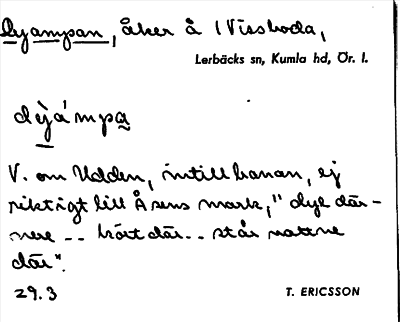 Dyampan, åker å (Vissboda,
Lerbäcks sn, Kumla hd, Ör. l.
dỳámpa
V. om Udden, intill banan, ej
riktigt till Åsens mark, "dyl där-
nere -- kört där.. står vattne
där".
29.3 T. ERICSSON